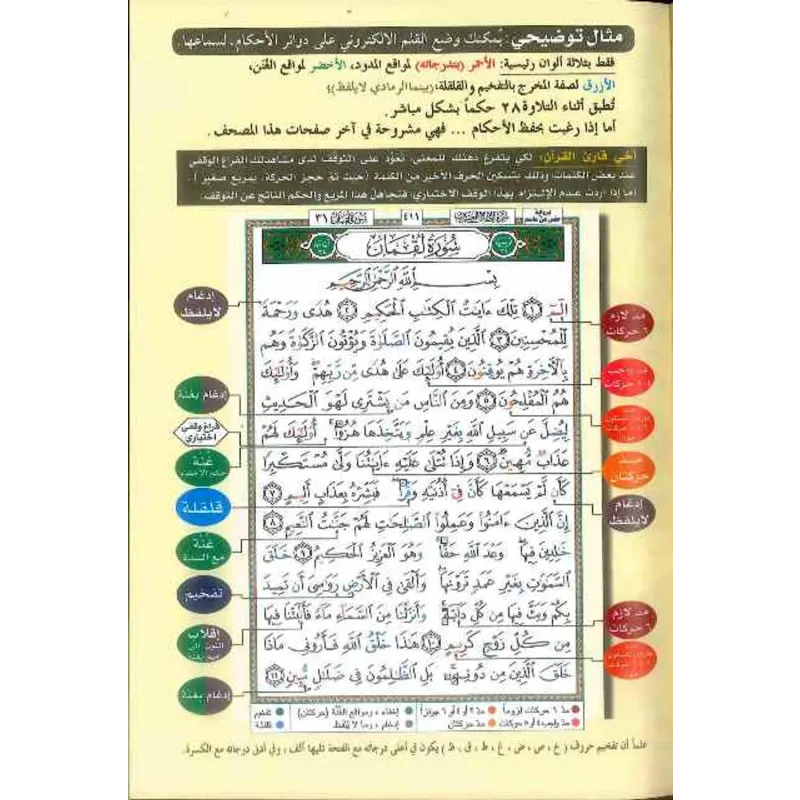 مثال توضيحي: يُمكنك وضع القلم الالكتروني على دوائر الأحكام، لسماعها.
فقط بثلاثة ألوان رئيسية: الأحمر (بتدرجاته) لمواقع المدود، الأخضر لمواقع الغُنَن،
الأزرق لصفة المخرج بالتفخيم والقلقلة، (بينما الرمادي لا يلفظ)؛
تُطبق أثناء التلاوة ٢٨ حكماً بشكل مباشر.
أما إذا رغبت بحفظ الأحكام ... فهي مشروحة في آخر صفحات هذا المصحف.
أخي قارئ القرآن: لكي يتفرغ ذهنك للمعنى، تعوّد على التوقف لدى مشاهدتك الفراغ الوقفي
عند بعض الكلمات، وذلك بتسكين الحرف الأخير من الكلمة (حيث تم حجز الحركة، بمربع صغير)
أما إذا أردت عدم الالتزام بهذا الوقف الاختياري، فتجاهل هذا المربع والحكم الناتج عن التوقف.
٤١١
سُورَةُ لُقْمَانَ ٣١
سُورَةُ لُقْمَانَ
بِسْمِ اللَّهِ الرَّحْمَٰنِ الرَّحِيمِ
الٓمٓ ١ تِلْكَ ءَايَٰتُ ٱلْكِتَٰبِ ٱلْحَكِيمِ ٢ هُدًى وَرَحْمَةً
لِّلْمُحْسِنِينَ ٣ ٱلَّذِينَ يُقِيمُونَ ٱلصَّلَوٰةَ وَيُؤْتُونَ ٱلزَّكَوٰةَ وَهُم
بِٱلْءَاخِرَةِ هُمْ يُوقِنُونَ ٤ أُو۟لَٰٓئِكَ عَلَىٰ هُدًى مِّن رَّبِّهِمْ وَأُو۟لَٰٓئِكَ
هُمُ ٱلْمُفْلِحُونَ ٥ وَمِنَ ٱلنَّاسِ مَن يَشْتَرِى لَهْوَ ٱلْحَدِيثِ
لِيُضِلَّ عَن سَبِيلِ ٱللَّهِ بِغَيْرِ عِلْمٍ وَيَتَّخِذَهَا هُزُوًا أُو۟لَٰٓئِكَ لَهُمْ
عَذَابٌ مُّهِينٌ ٦ وَإِذَا تُتْلَىٰ عَلَيْهِ ءَايَٰتُنَا وَلَّىٰ مُسْتَكْبِرًا
كَأَن لَّمْ يَسْمَعْهَا كَأَنَّ فِىٓ أُذُنَيْهِ وَقْرًا فَبَشِّرْهُ بِعَذَابٍ أَلِيمٍ ٧
إِنَّ ٱلَّذِينَ ءَامَنُوا۟ وَعَمِلُوا۟ ٱلصَّٰلِحَٰتِ لَهُمْ جَنَّٰتُ ٱلنَّعِيمِ ٨
خَٰلِدِينَ فِيهَا وَعْدَ ٱللَّهِ حَقًّا وَهُوَ ٱلْعَزِيزُ ٱلْحَكِيمُ ٩ خَلَقَ
ٱلسَّمَٰوَٰتِ بِغَيْرِ عَمَدٍ تَرَوْنَهَا وَأَلْقَىٰ فِى ٱلْأَرْضِ رَوَٰسِىَ أَن تَمِيدَ
بِكُمْ وَبَثَّ فِيهَا مِن كُلِّ دَآبَّةٍ وَأَنزَلْنَا مِنَ ٱلسَّمَآءِ مَآءً فَأَنۢبَتْنَا فِيهَا
مِن كُلِّ زَوْجٍ كَرِيمٍ ١٠ هَٰذَا خَلْقُ ٱللَّهِ فَأَرُونِى مَاذَا
خَلَقَ ٱلَّذِينَ مِن دُونِهِۦ بَلِ ٱلظَّٰلِمُونَ فِى ضَلَٰلٍ مُّبِينٍ ١١
مد لازم
٦ حركات
مد واجب
حركات
مد
حركتان
إدغام
لا يلفظ
مد لازم
٦ حركات
إدغام
لا يلفظ
إدغام بغنة
فراغ وقفي
اختياري
غنّة
قلقلة
غنّة
مع الشدة
تفخيم
إقلاب
إدغام بغنة
مدّ ٦ حركات لزوماً
مدّ ٢ أو ٤ أو ٦ جوازاً
إخفاء، ومواقع الغُنَّة (حركتان)
تفخيم
مدّ واجب ٤ أو ٥ حركات
مدّ حركتان
إدغام، وما لا يُلفظ
قلقلة
علماً أن تفخيم حروف (خ، ص، ض، غ، ط، ق، ظ) يكون في أعلى درجاته مع الفتحة تليها ألف، وفي أدنى درجاته مع الكسرة.